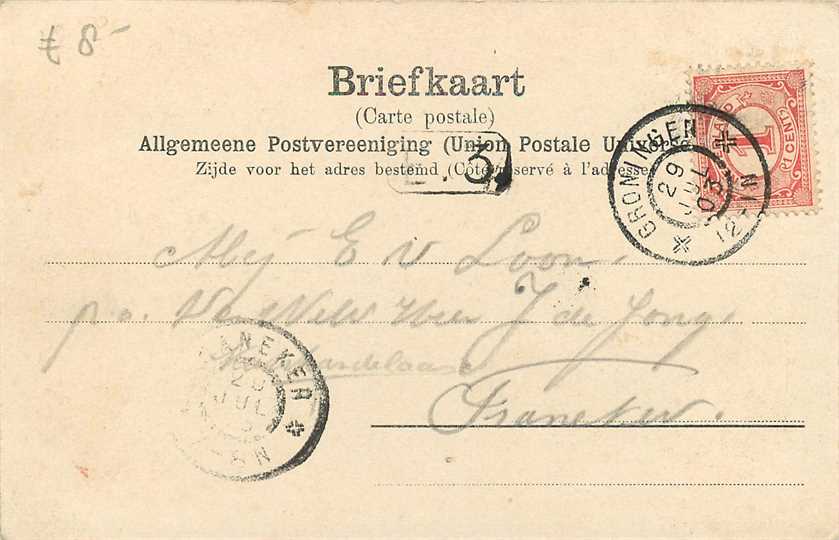 £ 8-
Briefkaart
(Carte postale)
Allgemeene Postvereeniging (Union Postale Univers
Zijde voor het adres bestemd (Côté réservé à l'adresse
3
1
1 CENT
GRONINGEN
29 JUL 03
12-1N
Mej E v Loon
p.a. J de Jong
Franeker
ANEKER
JUL